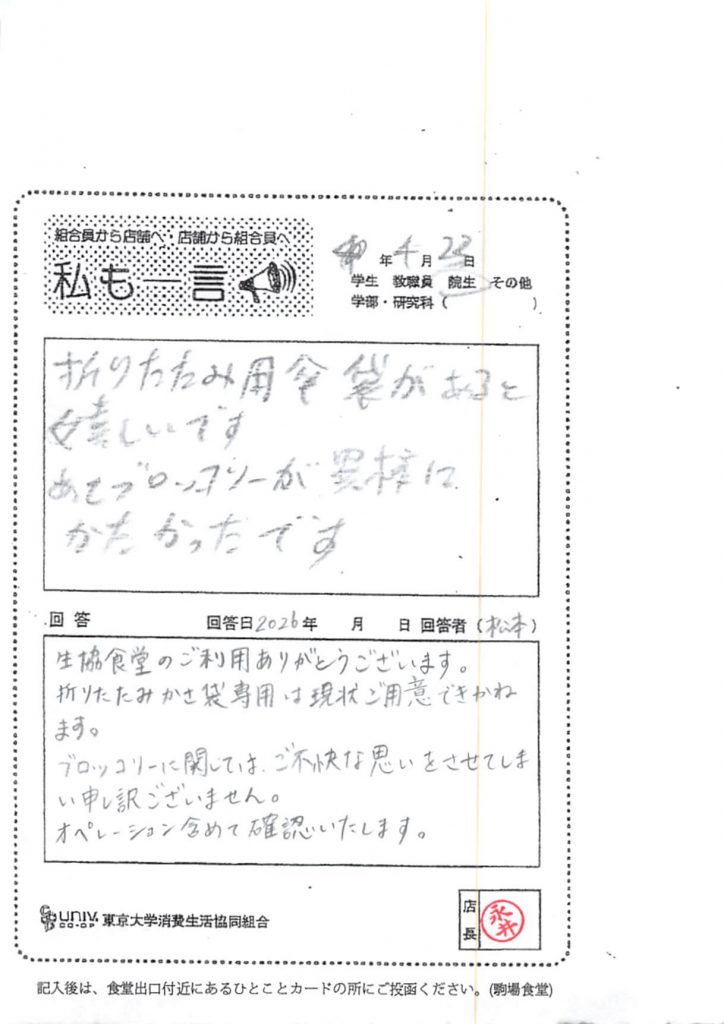 組合員から店舗へ・店舗から組合員へ
私も一言
年 4月 23日
学生 教職員 院生 その他
学部・研究科( )
折りたたみ用傘袋があると
嬉しいです
あとブロッコリーが異様に
かたかったです
回答 回答日2026年 月 日 回答者(松本)
生協食堂のご利用ありがとうございます。
折りたたみかさ袋専用は現状ご用意できかね
ます。
ブロッコリーに関しては、ご不快な思いをさせてしま
い申し訳ございません。
オペレーション含めて確認いたします。
UNIV. CO-OP 東京大学消費生活協同組合
店長 永井
記入後は、食堂出口付近にあるひとことカードの所にご投函ください。(駒場食堂)